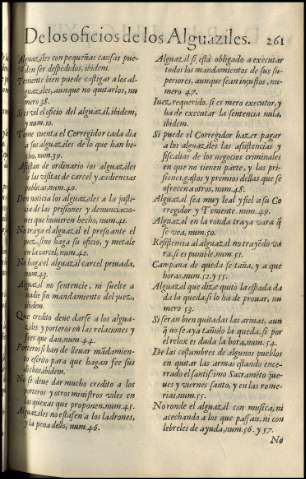 De los oficios de los Alguaziles. 261
Alguaziles con pequeñas causas pue-
den ser despedidos, ibidem.
Teniente bien puede castigar a los al-
guaziles, aunque no quitarlos, nu
mero 38.
Si es vil oficio del alguazil, ibidem,
y num.
Tome cuenta el Corregidor cada dia
a sus alguaziles de lo que han he-
cho, num. 39.
Assistan de ordinario los alguaziles
a las visitas de carcel y audiencias
publicas. num. 40.
Den noticia los alguaziles a la justi-
cia de las prisiones y denunciacio-
nes que huvieren hecho, num. 41.
No trayga el alguazil el preso ante el
juez, sino haga su oficio, y metale
en la carcel, num. 42.
No haga el alguazil carcel privada,
num. 43.
Alguazil no sentencie, ni suelte a
nadie sin mandamiento del juez,
ibidem.
Que credito deve darse a los algua-
ziles y porteros en las relaciones y
fees que dan, num. 44.
Porteros han de llevar mãdamien-
to escrito para que hagan fee sus
dichos, ibidem.
No se deve dar mucho credito a los
porteros y otros ministros viles en
las quexas que proponen, num. 45.
Alguaziles no estafen a los ladrones,
y la pena dello, num. 46.
Alguazil si està obligado a executar
todos los mandamientos de sus su-
periores, aunque sean injustos, nu-
mero 47.
Juez requerido, si es mero executor, y
ha de executar la sentencia nula,
ibidem.
Si puede el Corregidor hazer pagar
a los alguaziles las assistencias y
fiscalias de los negocios criminales
en que no tienen parte, y las pri-
siones, galas y premios dellas que se
ofrecen a otros, num. 48.
Alguazil sea muy leal y fiel a su Co
rregidor y Teniente. num. 49.
Alguazil en la ronda trayga vara q̃
se vea, num. 50.
Resistencia al alguazil no trayẽdo va
ra, si es punible, num. 51.
Campana de queda se taña, y a que
horas, num. 52. y 55.
Alguazil que dize quitò la espada da
da la queda, si lo ha de provar, nu
mero 53.
Si seran bien quitadas las armas, aun
q̃ no se aya tañido la queda, si por
el relox es dada la hora, num. 54.
De las costumbres de algunos pueblos
en quitar las armas estando ence-
rrado el santissimo Sacramẽto jue-
ves y viernes santo, y en las rome-
rias, num. 55.
No ronde el alguazil con musica, ni
acechando a los que passan, ni con
lebreles de ayuda, num. 56. y 57.
No